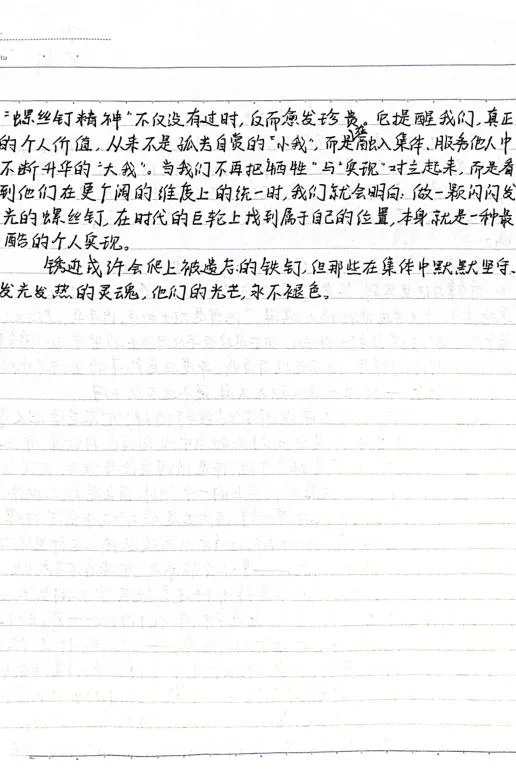 to
“螺丝钉精神”不仅没有过时,反而愈发珍贵。它提醒我们,真正
的个人价值,从来不是孤芳自赏的“小我”,而是在融入集体、服务他人中
不断升华的“大我”。当我们不再把牺牲”与“实现”对立起来,而是看
到他们在更广阔的维度上的统一时,我们就会明白:做一颗闪闪发
光的螺丝钉,在时代的巨轮上找到属于自己的位置,本身就是一种最
酷的个人实现。
铁迹或许会爬上被遗忘的铁钉,但那些在集体中默默坚守、
发光发热的灵魂,他们的光芒,永不褪色。